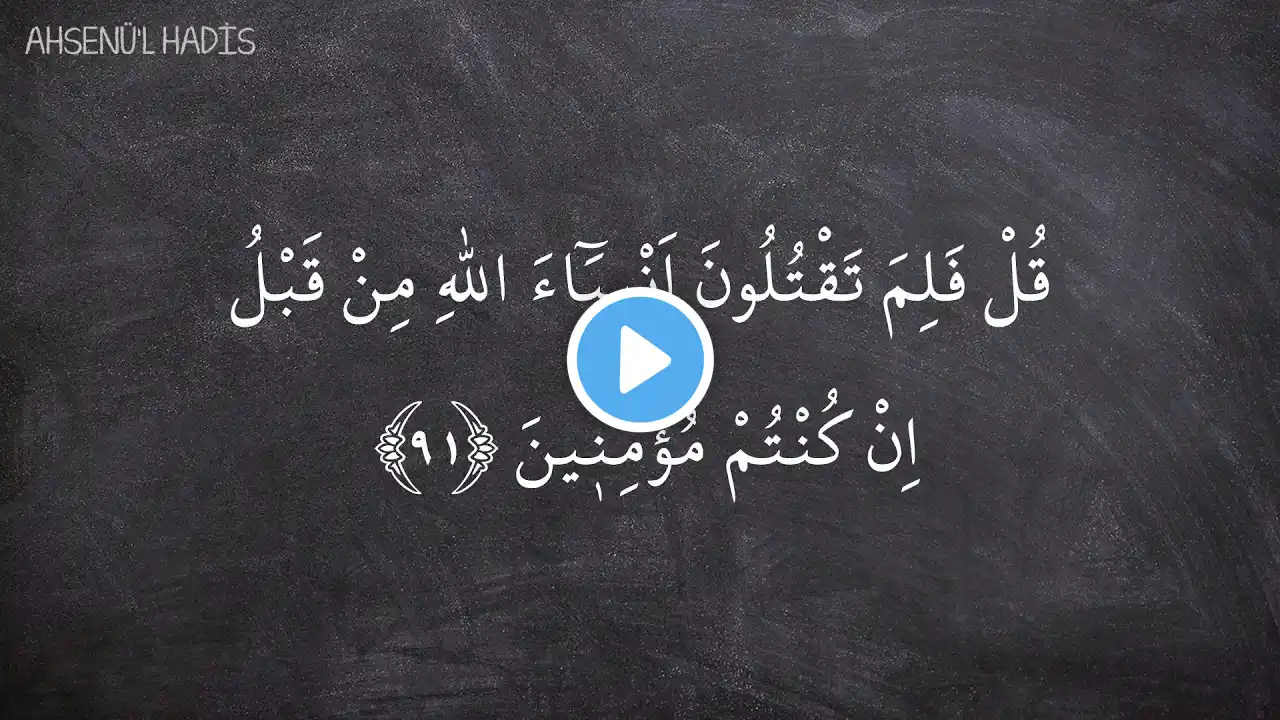 AHSENÜ'L HADİS
قُلْ فَلِمَ تَقْتُلُونَ اَنْبِيَٓاءَ اللّٰهِ مِنْ قَبْلُ
اِنْ كُنْتُمْ مُؤْمِنٖينَ ﴿٩١﴾